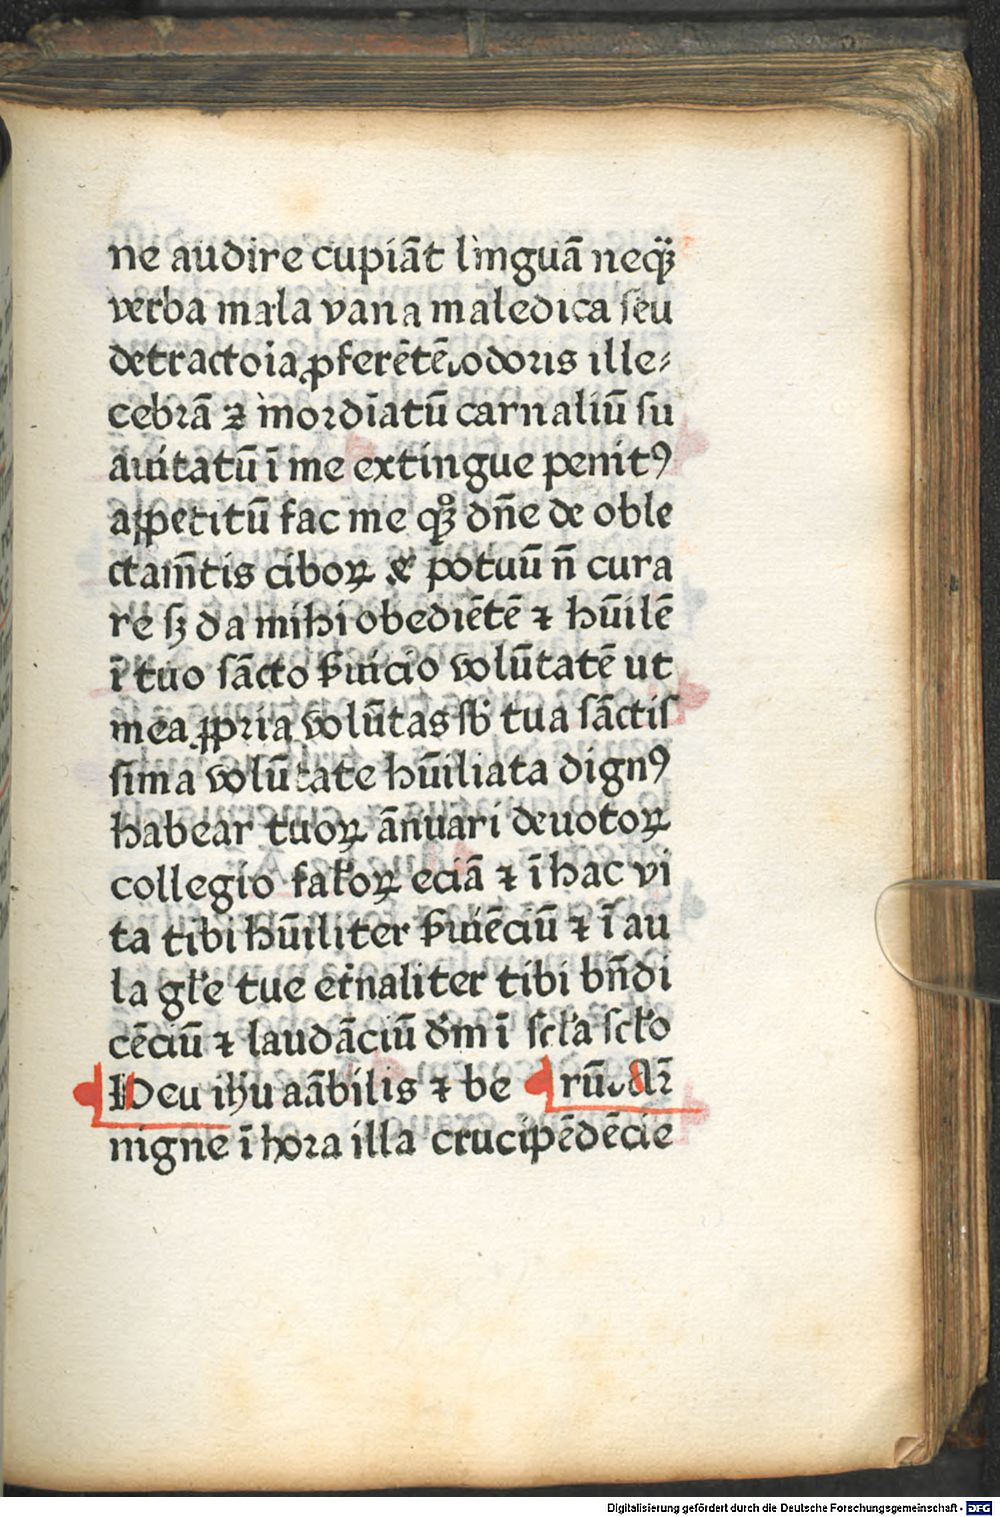 ne audire cupiāt linguā neqꝫ
verba mala vana maledica seu
detractoia ꝓferētē odoris ille⸗
cebrā ⁊ mordiatū carnaliū su
auitatū ī me extingue penitꝰ
appetitū fac me qꝫ dn̄e de oble
ctam̄tis ciboꝝ & potuū n̄ cura
re sꝫ da mihi obediētē ⁊ hūilē
ī tuo sācto ẜuicio volūtatē ut
mea ꝓpria volūtas sb tua sāctis
sima volūtate hūiliata dignꝰ
habear tuoꝝ ānuari deuotoꝝ
collegio faƚoꝝ eciā ⁊ ī hac vi
ta tibi hūiliter ẜuiēciū ⁊ ī au
la gƚe tue et̄naliter tibi bn̄di
cēciū ⁊ laudāciū oīm ī scƚa scƚo
rū.
Deu ih̄u aābilis ⁊ be
nigne ī hora illa crucipēdēcie
Digitalisierung gefördert durch die Deutsche Forschungsgemeinschaft - DFG